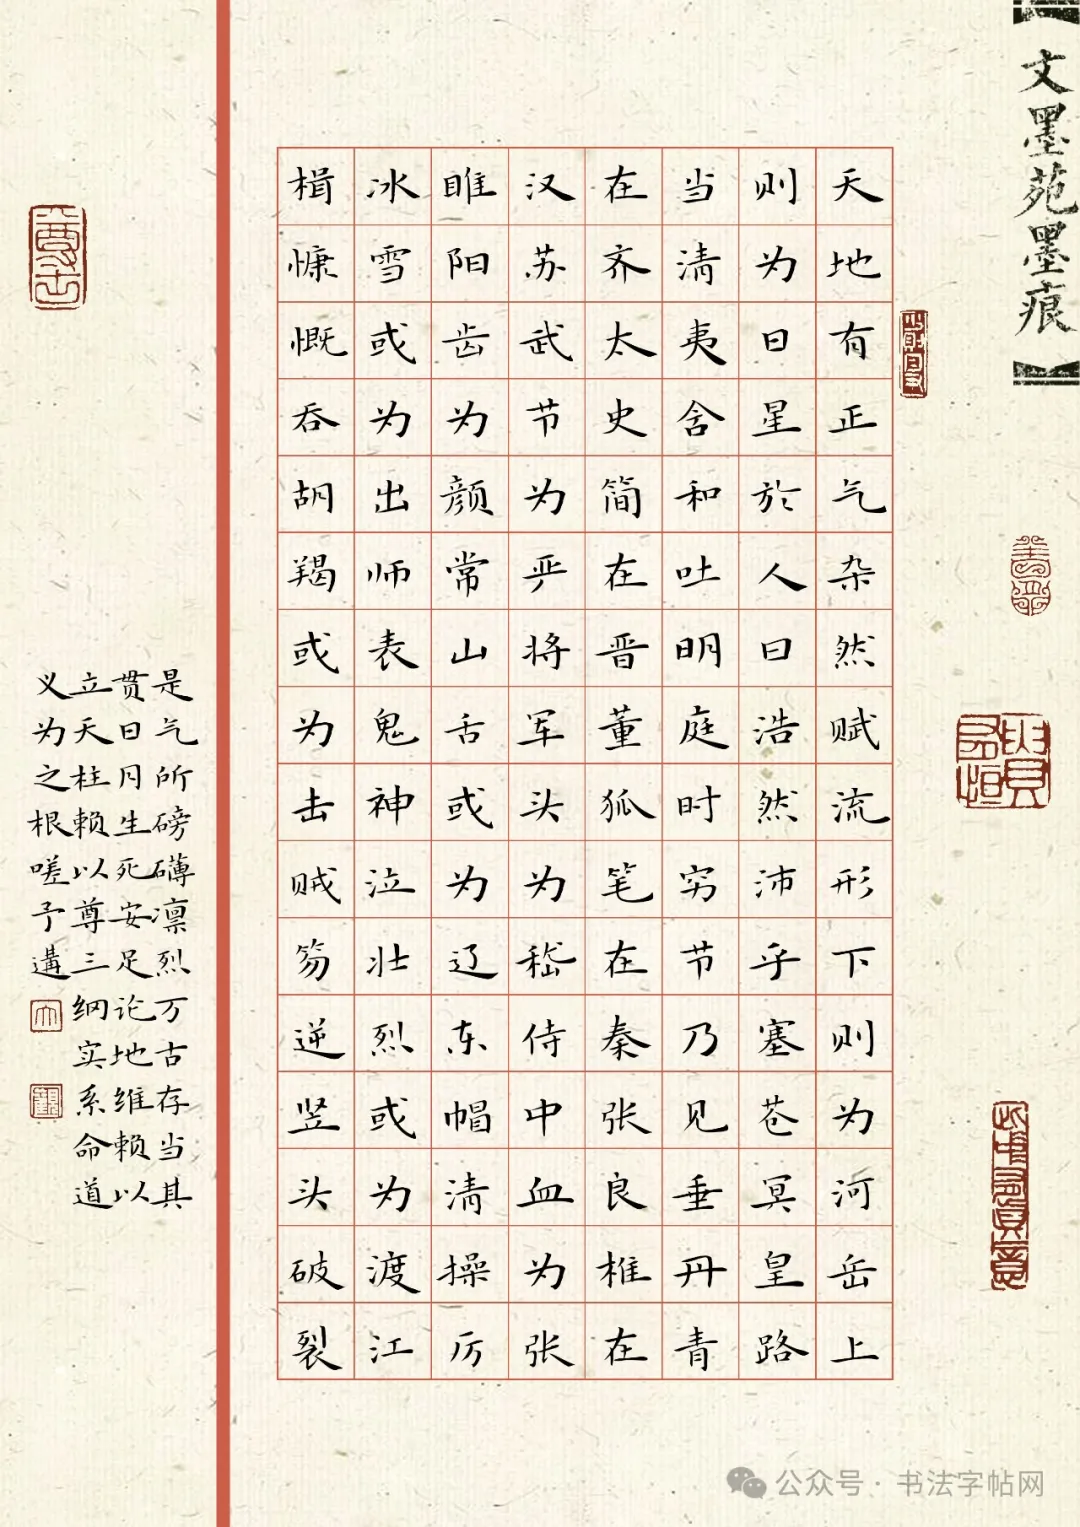 文墨苑墨痕
天地有正气杂然赋流形下则为河岳上
则为日星於人曰浩然沛乎塞苍冥皇路
当清夷含和吐明庭时穷节乃见垂丹青
在齐太史简在晋董狐笔在秦张良椎在
汉苏武节为严将军头为嵇侍中血为张
睢阳齿为颜常山舌或为辽东帽清操厉
冰雪或为出师表鬼神泣壮烈或为渡江
楫慷慨吞胡羯或为击贼笏逆竖头破裂
是气所磅礴凛烈万古存当其
贯日月生死安足论地维赖以
立天柱赖以尊三纲实系命道
义为之根嗟予遘
公众号·书法字帖网